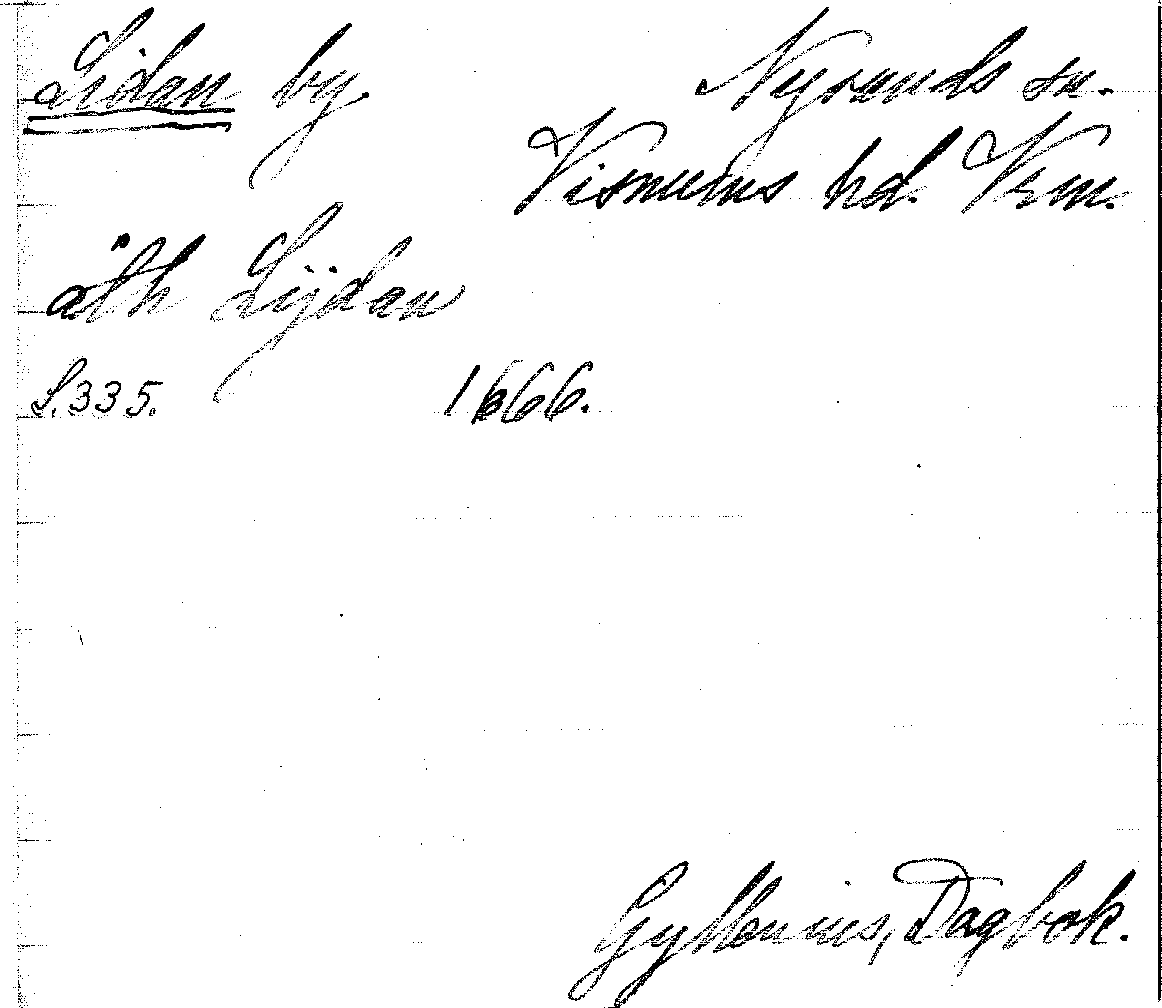 Lidan by. Nysunds sn.
Visnums hd. Vrm.
åth Lijdan
S. 335. 1666.
Gyllenius, Dagbok.